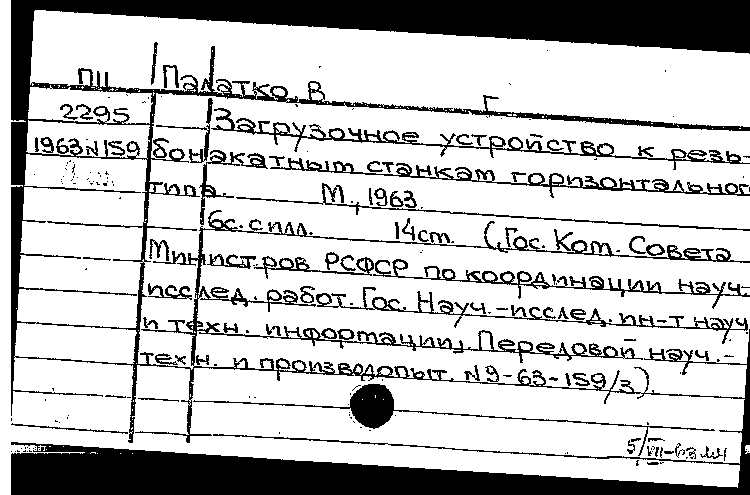 ПII Палатко, В Г
2295 Загрузочное устройство к резь-
1963 N 159 бонакатным станкам горизонтального
типа. М., 1963.
6с. с илл. 14см. (,,Гос. Ком. Совета
Министров РСФСР по координации науч.-
исслед. работ. Гос. Науч.-исслед. ин-т науч
и техн. информации". Передовой науч.-
техн. и производ опыт. N 9-63-159/3).
5/VII-63